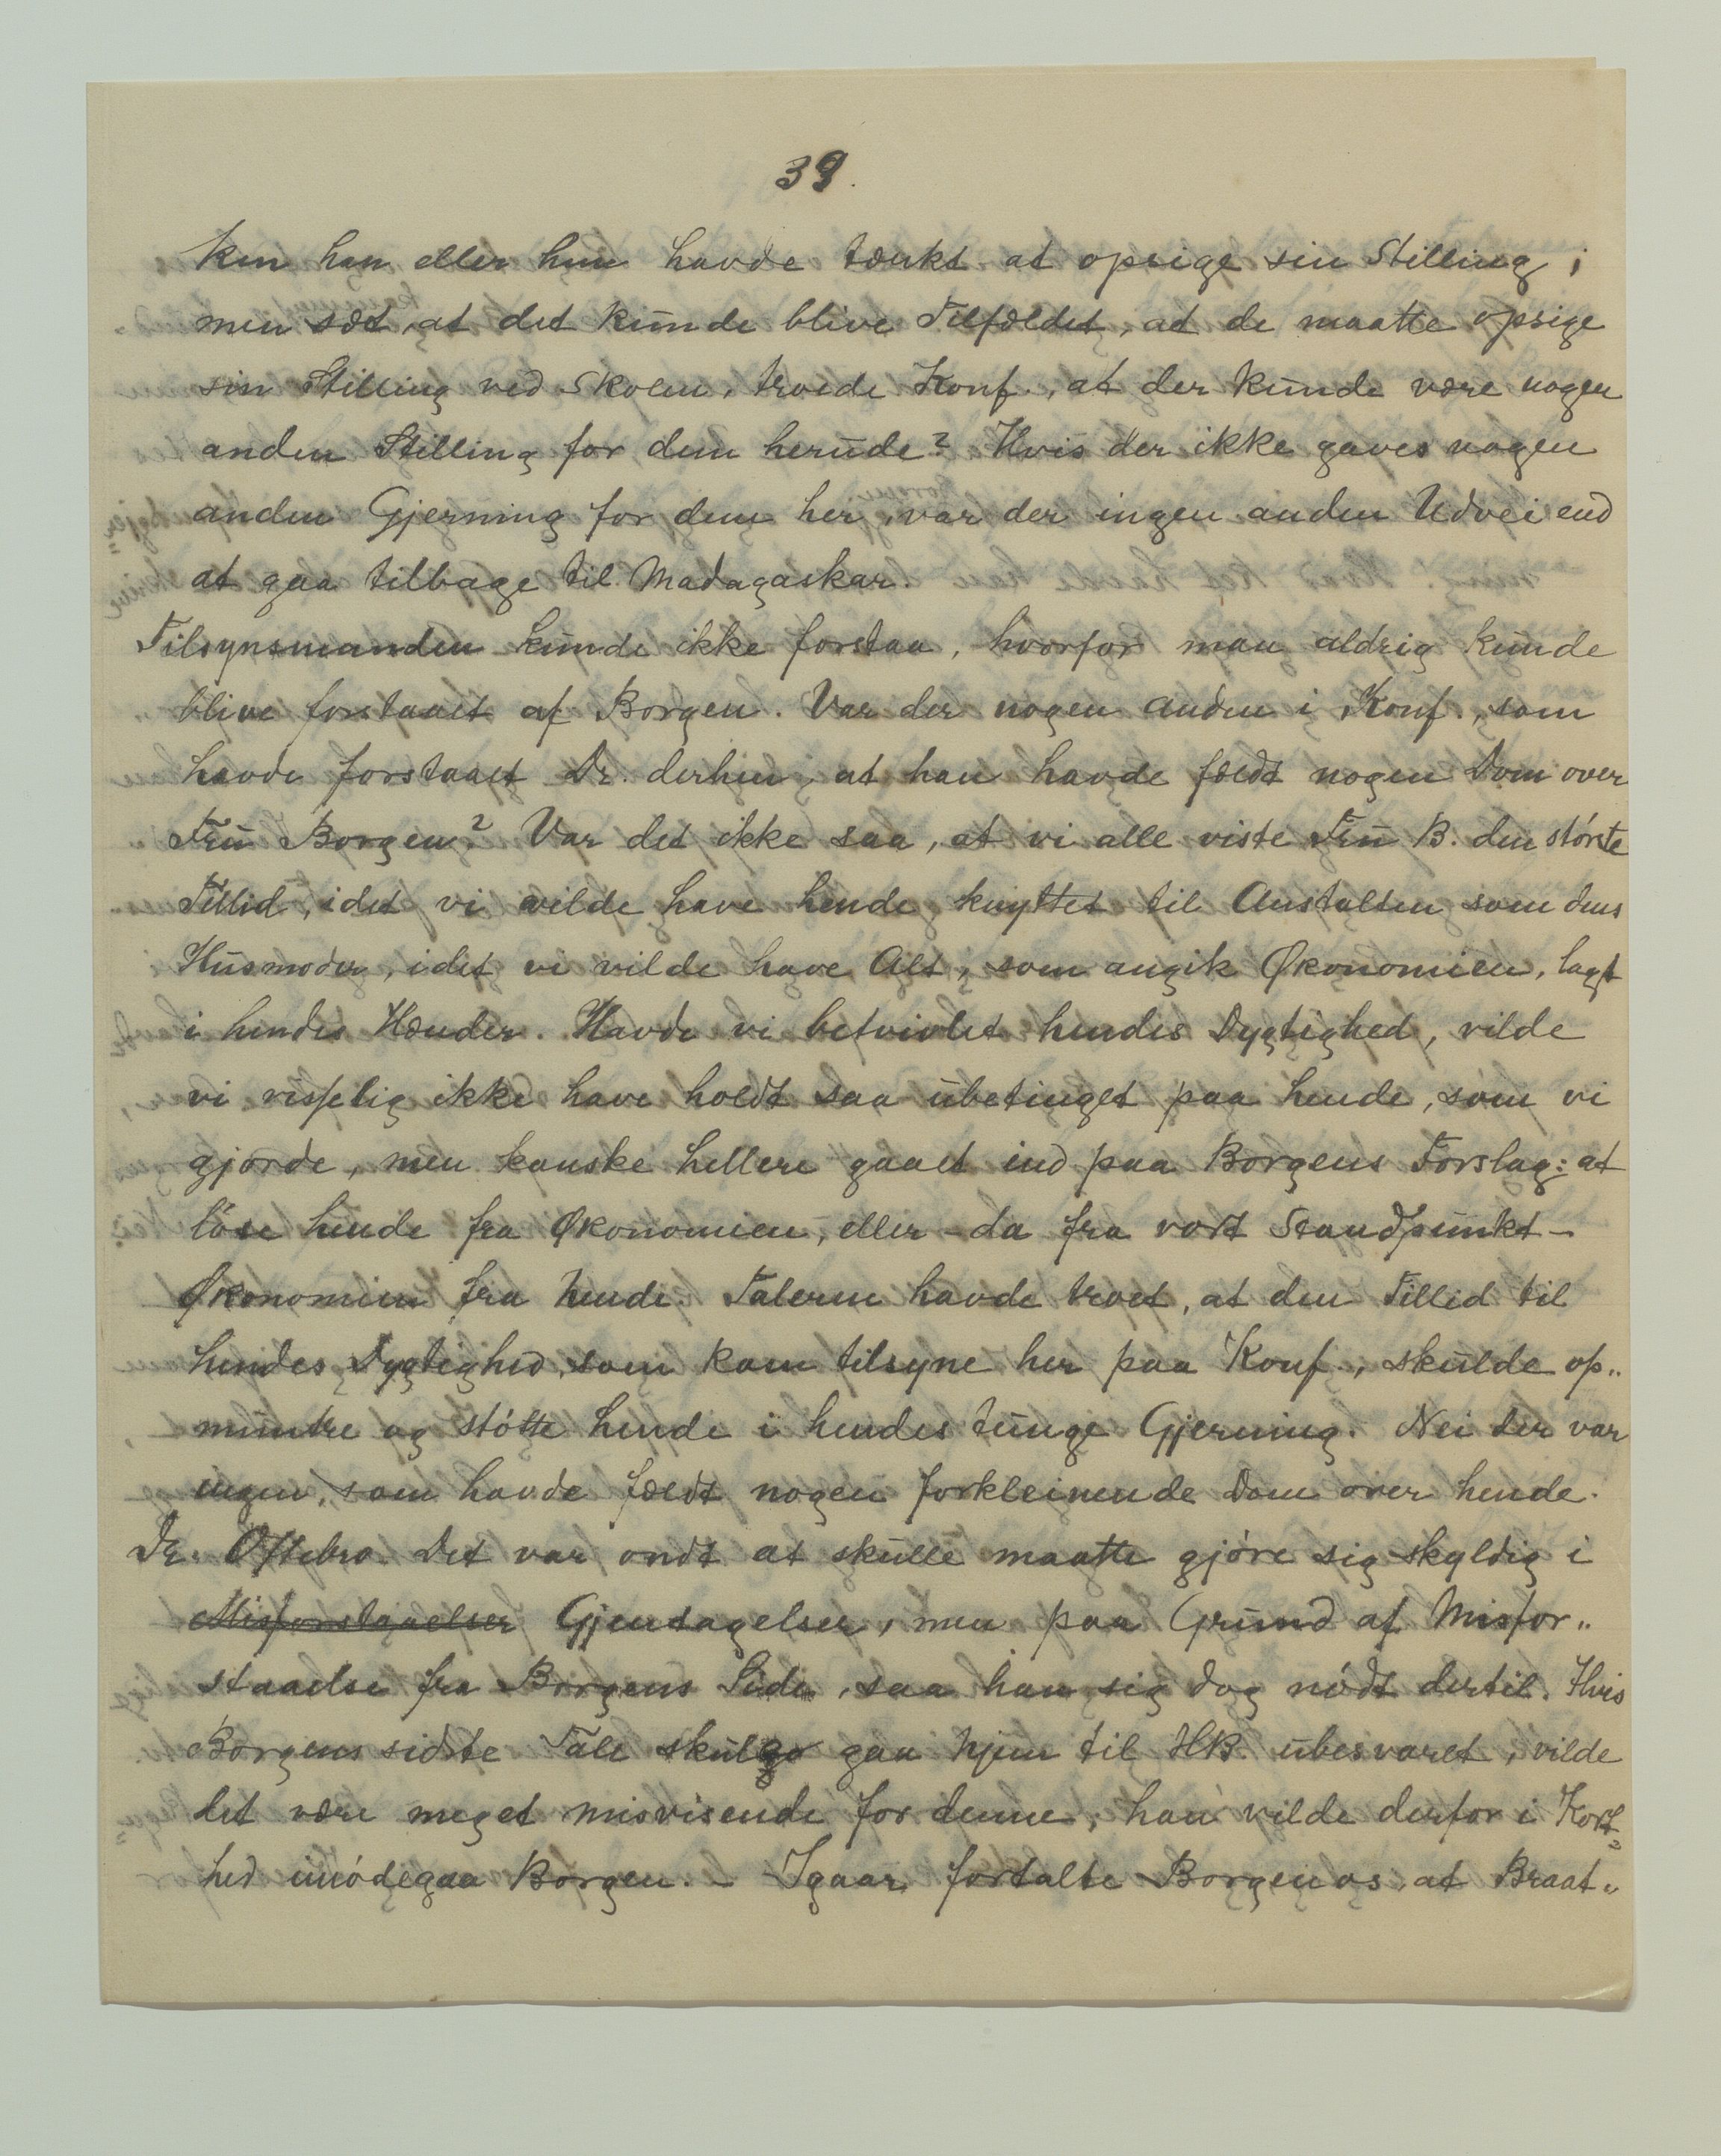 39.
ken han eller hun havde tænkt at opsige sin Stilling;
men sæt, at det kunde blive Tilfældet, at de maatte opsige
sin Stilling ved Skolen, troede Konf., at der kunde være nogen
anden Stilling for dem herude? Hvis der ikke gaves nogen
anden Gjerning for dem her, var der ingen anden Udvei end
at gaa tilbage til Madagaskar.
Tilsynsmanden kunde ikke forstaa, hvorfor man aldrig kunde
blive forstaaet af Borgen. Var der nogen anden i Konf., som
havde forstaaet Dr. derhen, at han havde fældt nogen Dom over
Fru Borgen? Var det ikke saa, at vi alle viste Fru B. den störste
Tillid, idet vi vilde have hende knyttet til Anstalten som dens
Husmoder, idet vi vilde have Alt, som angik Økonomien, lagt
i hendes Hænder. Havde vi betvivlet hendes Dygtighed, vilde
vi visselig ikke have holdt saa ubetinget paa hende, som vi
gjorde, men kanske hellere gaaet ind paa Borgens Forslag: at
löse hende fra Økonomien, eller – da fra vort Standpunkt –
Økonomien fra hende. Taleren havde troet, at den Tillid til
hendes Dygtighed, som kom tilsyne her paa Konf., skulde op„
muntre og stötte hende i hendes tunge Gjerning. Nei der var
ingen, som havde fældt nogen forkleinende Dom over hende.
Dr. Oftebro. Det var ondt at skulle maatte gjöre sig skyldig i
Misforstaaelser Gjentagelser, men paa Grund af Misfor„
staaelse fra Borgens Side, saa han sig dog nödt dertil. Hvis
Borgens sidste Tale skulde gaa hjem til HB. ubesvaret, vilde
det være meget misvisende for denne; han vilde derfor i Kort=
hed imödegaa Borgen. – Igaar fortalte Borgen os, at Braat„